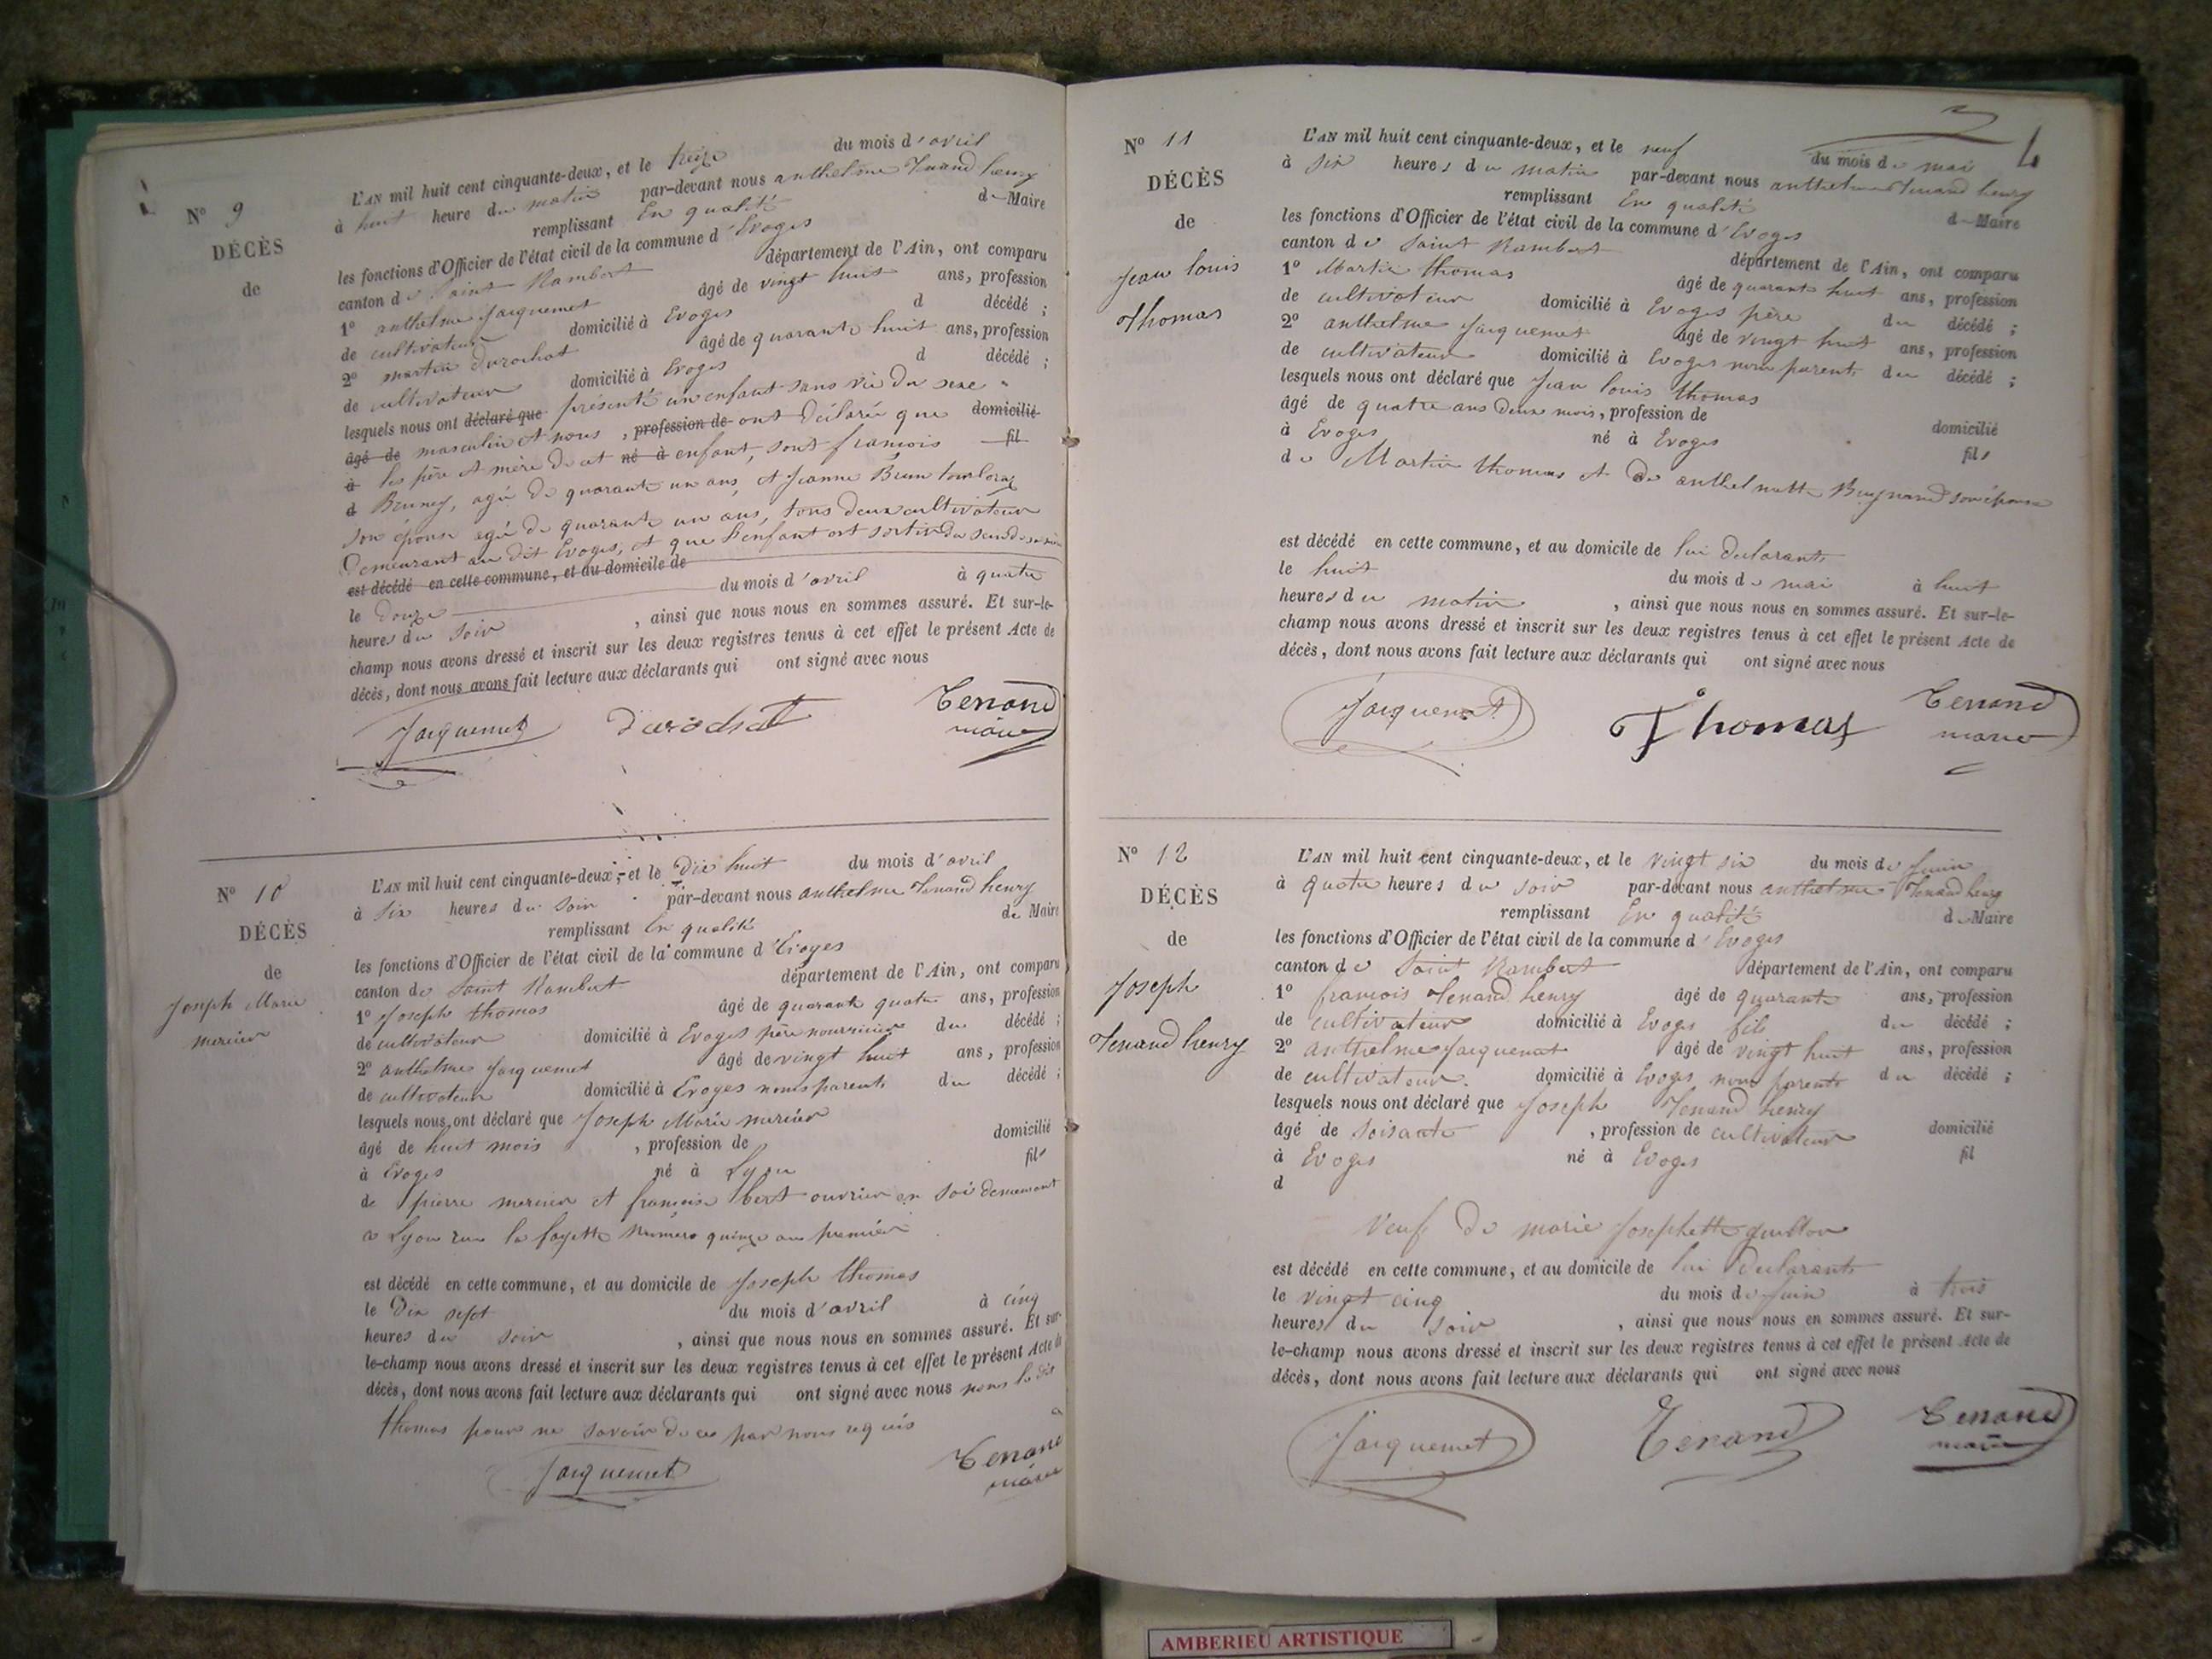 N° 9
DÉCÈS
de
L'AN mil huit cent cinquante-deux, et le treize du mois d'avril
à huit heure du matin par-devant nous anthelme Tenand henry
remplissant En qualité de Maire
les fonctions d'Officier de l'état civil de la commune d'Evoges
canton de Saint Rambert département de l'Ain, ont comparu
1° anthelme Jacquemet âgé de vingt huit ans, profession
de cultivateur domicilié à Evoges d décédé ;
2° martin durochat âgé de quarante huit ans, profession
de cultivateur domicilié à Evoges d décédé ;
lesquels nous ont déclaré que présenté un enfant sans vie du sexe
âgé de masculin et nous , profession de ont déclaré que domicilié
à les père et mère de cet né à enfant, sont francois fil
d Benney, agé de quarante un ans, et Jeanne Brun
son épouse agé de quarante un ans, tous deux cultivateur
Demeurant au dit Evoges, et que l'enfant est sorti du sein de sa mère
est décédé en cette commune, et au domicile de
le Douze du mois d'avril à quatre
heures du soir , ainsi que nous nous en sommes assuré. Et sur-le-
champ nous avons dressé et inscrit sur les deux registres tenus à cet effet le présent Acte de
décès, dont nous avons fait lecture aux déclarants qui ont signé avec nous
Jacquemet durochat Tenand
maire
N° 10
DÉCÈS
de
Joseph Marie
mercier
L'AN mil huit cent cinquante-deux, et le Dix huit du mois d'avril
à Six heures du soir par-devant nous anthelme Tenand henry
remplissant En qualité de Maire
les fonctions d'Officier de l'état civil de la commune d'Evoges
canton de Saint Rambert département de l'Ain, ont comparu
1° Joseph thomas âgé de quarante quatre ans, profession
de cultivateur domicilié à Evoges père nourricier du décédé ;
2° anthelme Jacquemet âgé de vingt huit ans, profession
de cultivateur domicilié à Evoges nom parents du décédé ;
lesquels nous ont déclaré que Joseph Marie mercier
âgé de huit mois , profession de domicilié
à Evoges né à Lyon fils
de pierre mercier et francoise bert ouvrier en soie demeurant
a Lyon rue la fayette numéro quinze au premier
est décédé en cette commune, et au domicile de Joseph thomas
le Dix sept du mois d'avril à cinq
heures du soir , ainsi que nous nous en sommes assuré. Et sur-
le-champ nous avons dressé et inscrit sur les deux registres tenus à cet effet le présent Acte de
décès, dont nous avons fait lecture aux déclarants qui ont signé avec nous nom le dit
thomas pour ne savoir de ce par nous requis
Jacquemet Tenand
maire
N° 11
DÉCÈS
de
Jean louis
Thomas
L'AN mil huit cent cinquante-deux, et le neuf du mois de mai
à six heures du matin par-devant nous anthelme Tenand henry
remplissant En qualité de Maire
les fonctions d'Officier de l'état civil de la commune d'Evoges
canton de Saint Rambert département de l'Ain, ont comparu
1° Martin thomas âgé de quarante huit ans, profession
de cultivateur domicilié à Evoges père du décédé ;
2° anthelme Jacquemet âgé de vingt huit ans, profession
de cultivateur domicilié à Evoges nom parents du décédé ;
lesquels nous ont déclaré que Jean louis thomas
âgé de quatre ans deux mois, profession de
à Evoges né à Evoges domicilié
de Martin thomas et de anthelmette son épouse fils
est décédé en cette commune, et au domicile de lui declarants
le huit du mois de mai à huit
heures du matin , ainsi que nous nous en sommes assuré. Et sur-le-
champ nous avons dressé et inscrit sur les deux registres tenus à cet effet le présent Acte de
décès, dont nous avons fait lecture aux déclarants qui ont signé avec nous
Jacquemet Thomas Tenand
maire
N° 12
DÉCÈS
de
Joseph
Tenand henry
L'AN mil huit cent cinquante-deux, et le vingt six du mois de Juin
à quatre heures du soir par-devant nous anthelme Tenand henry
remplissant En qualité de Maire
les fonctions d'Officier de l'état civil de la commune d'Evoges
canton de Saint Rambert département de l'Ain, ont comparu
1° francois Tenand henry âgé de quarante ans, profession
de cultivateur domicilié à Evoges fils du décédé ;
2° anthelme Jacquemet âgé de vingt huit ans, profession
de cultivateur domicilié à Evoges nom parents du décédé ;
lesquels nous ont déclaré que Joseph Tenand henry
âgé de soisante , profession de cultivateur domicilié
à Evoges né à Evoges fil
d
Veuf de marie Josephette guillon
est décédé en cette commune, et au domicile de lui declarants
le vingt cinq du mois de Juin à trois
heures du soir , ainsi que nous nous en sommes assuré. Et sur-
le-champ nous avons dressé et inscrit sur les deux registres tenus à cet effet le présent Acte de
décès, dont nous avons fait lecture aux déclarants qui ont signé avec nous
Jacquemet Tenand Tenand
maire
AMBERIEU ARTISTIQUE